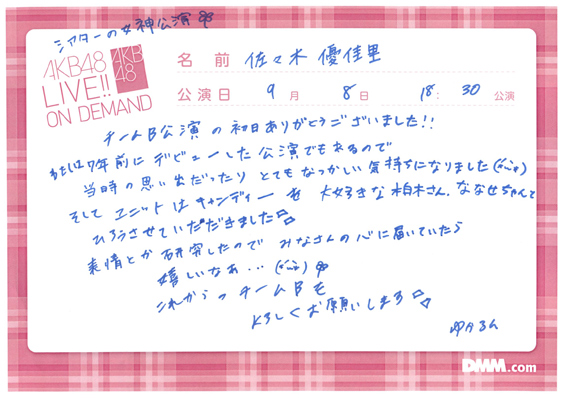 シアターの女神公演
AKB48 LIVE!! ON DEMAND
AKB48
名前 佐々木 優佳里
公演日 9月 8日 18:30 公演
チームB公演の初日ありがとうございました!!
私は7年前にデビューした公演でもあるので
当時の思い出だったり とてもなつかしい気持ちになりました
そして ユニットは キャンディー を 大好きな柏木さん、ななせちゃんと
ひろうさせていただきました
表情とか研究したので みなさんの心に届いていたら
嬉しいなぁ…
これからの チームBを
よろしくお願いします
ゆうるん
DMM.com